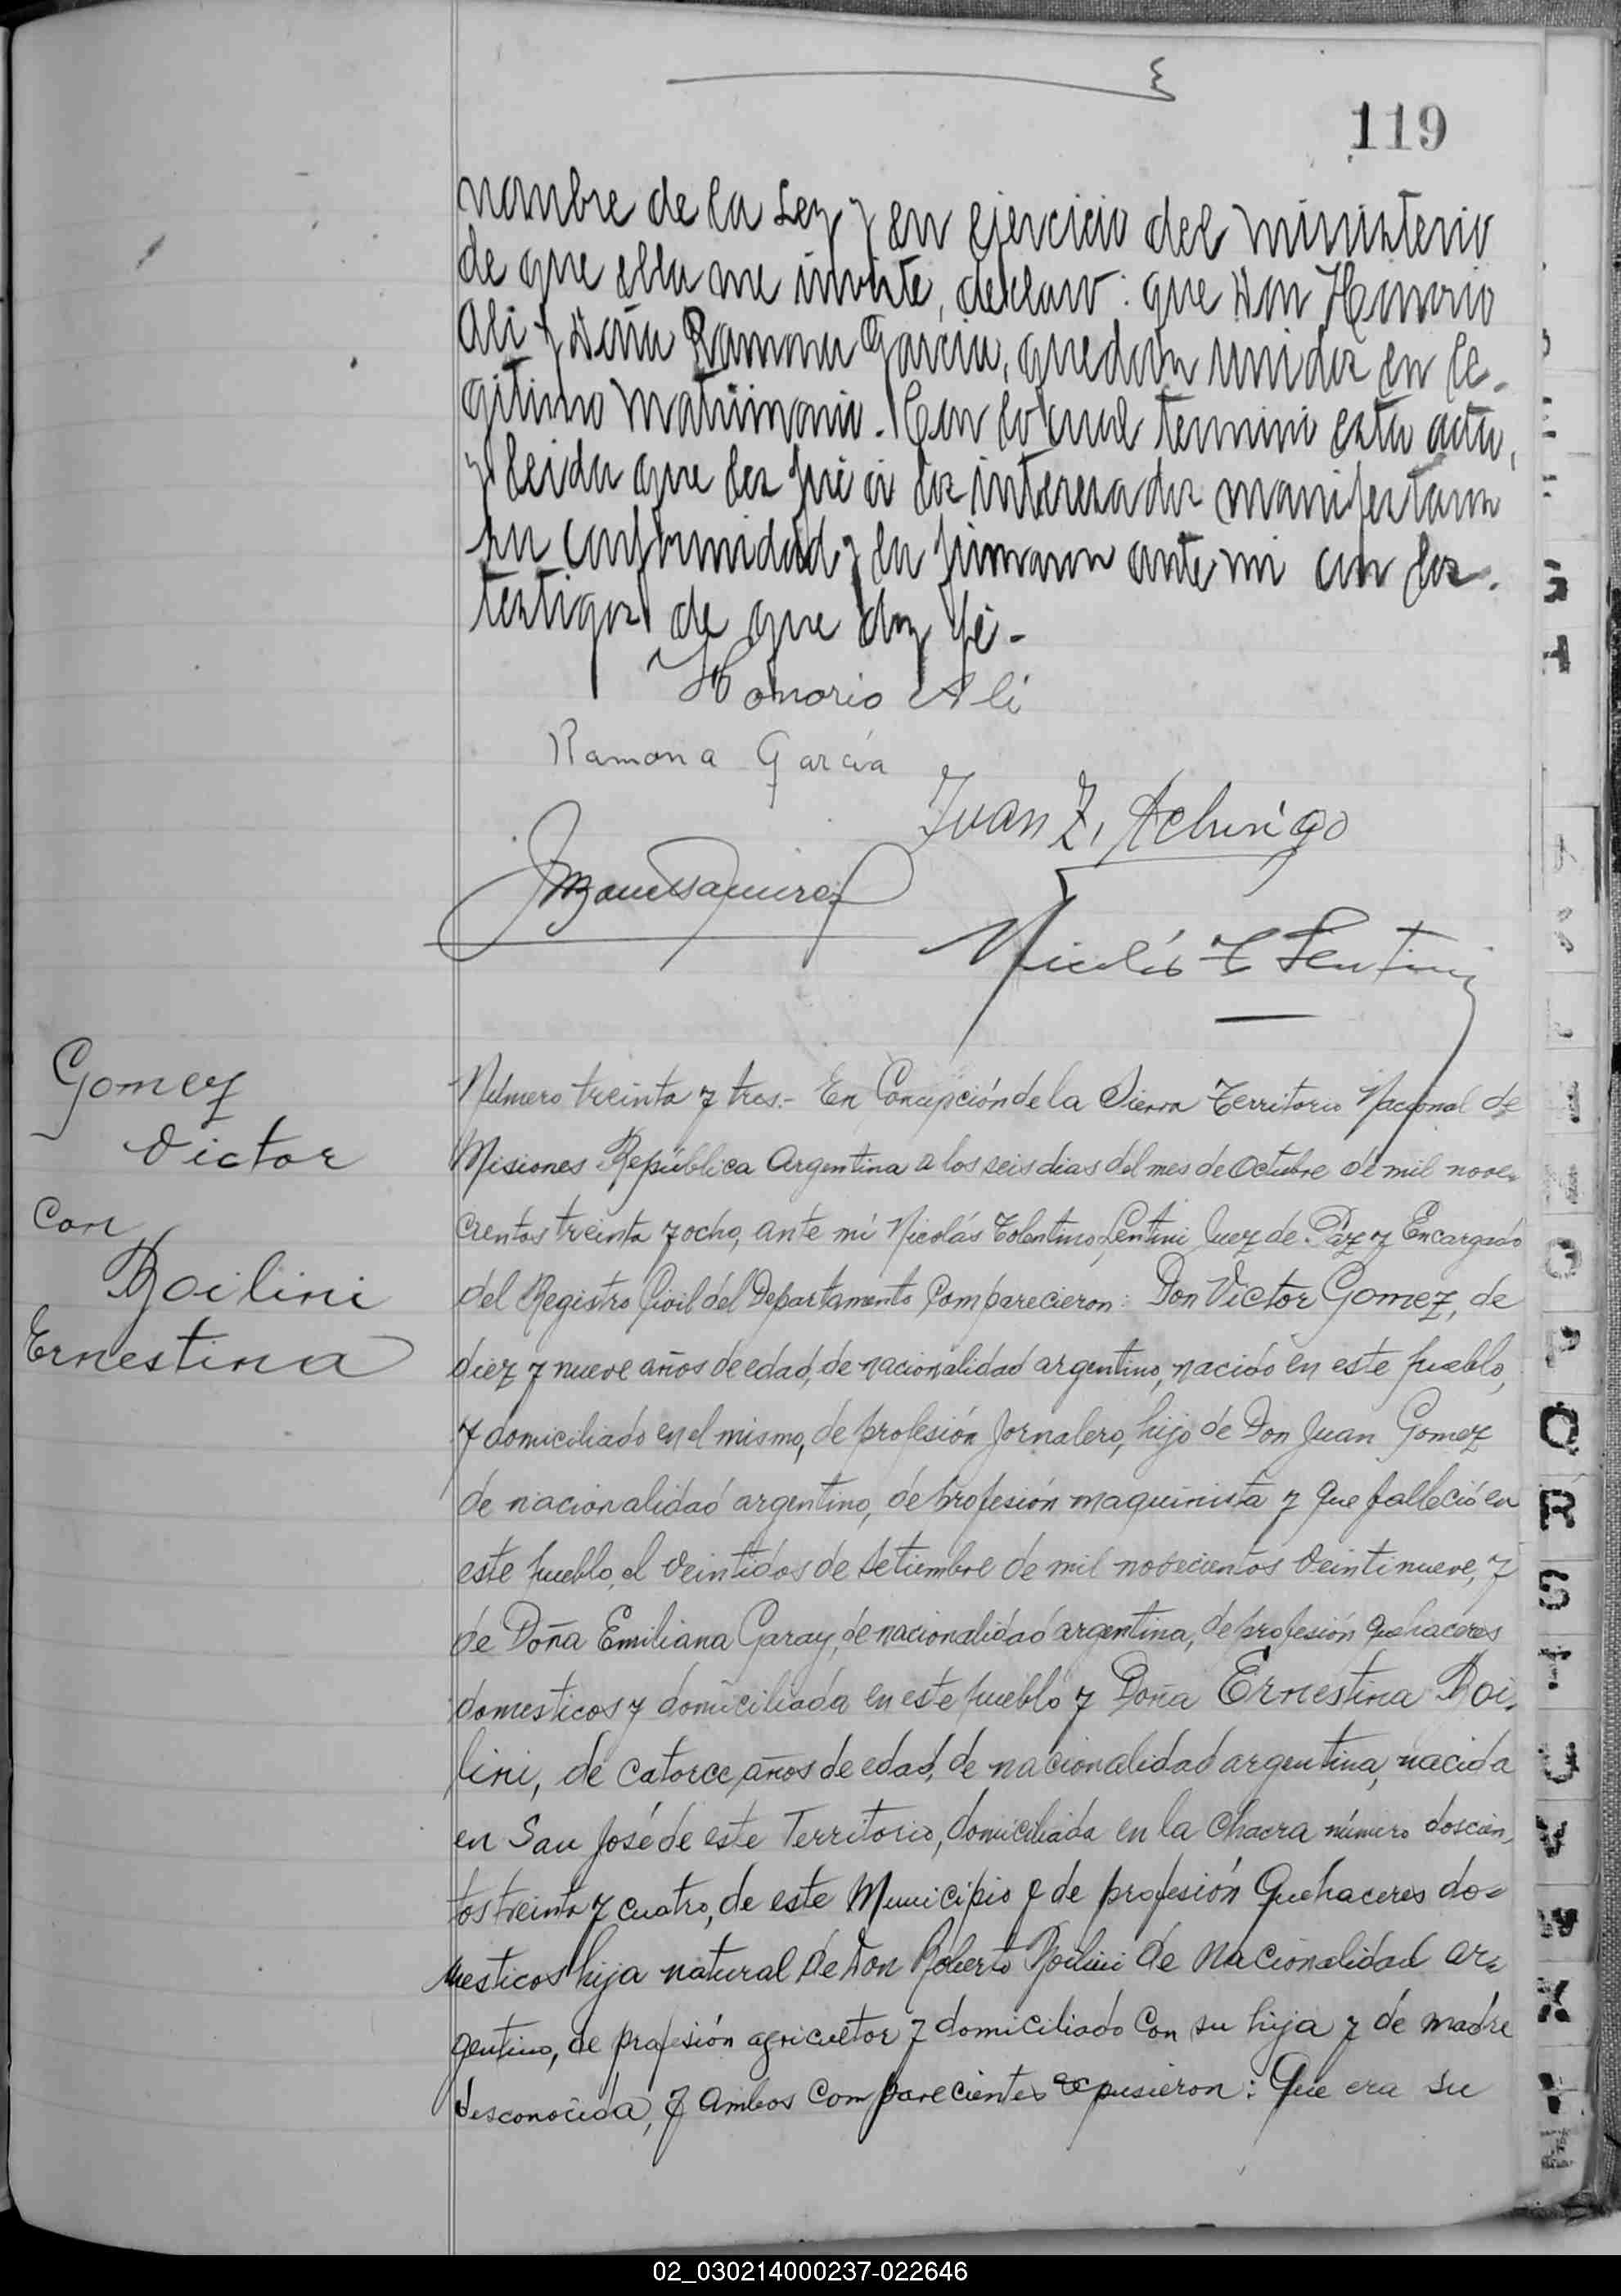 119
nombre de la Ley y en ejercicio del ministerio
de que ella me inviste, declaro: que Don Honorio
Ali y Doña Ramona Garcia, quedan unidos en le-
gitimo matrimonio. Con lo cual terminó esta acta,
y leida que les fué á los interesados manifestaron
su conformidad y la firmaron ante mi con los
testigos de que doy fé.-
Honorio Ali
Ramona García
Juan Z. Achinigo
Nicolás T Lentini
Gomez
Victor
con
Roilini
Ernestina
Número treinta y tres.- En Concepción de la Sierra Territorio Nacional de
Misiones República Argentina a los seis dias del mes de Octubre de mil nove-
cientos treinta y ocho, ante mi Nicolás Tolentino Lentini Juez de Páz y Encargado
del Registro Civil del Departamento Comparecieron: Don Victor Gomez, de
diez y nueve años de edad, de nacionalidad argentino, nacido en este pueblo,
y domiciliado en el mismo, de profesión Jornalero, hijo de Don Juan Gomez
de nacionalidad argentino, de profesión maquinista y que falleció en
este pueblo, el veintidos de Setiembre de mil novecientos veintinueve, y
de Doña Emiliana Garay, de nacionalidad argentina, de profesión Quehaceres
domesticos y domiciliada en este pueblo y Doña Ernestina Roi-
lini, de Catorce años de edad, de nacionalidad argentina, nacida
en San José de este Territorio, domiciliada en la Chacra número doscien-
tos treinta y cuatro, de este Municipio y de profesión Quehaceres do-
mesticos hija natural de Don Roberto Roilini de nacionalidad ar-
gentino, de profesión agricultor y domiciliado Con su hija y de madre
desconocida, y ambos Comparecientes expusieron: Que era su
O
P
Q
R
S
T
U
V
W
X
02_030214000237-022646